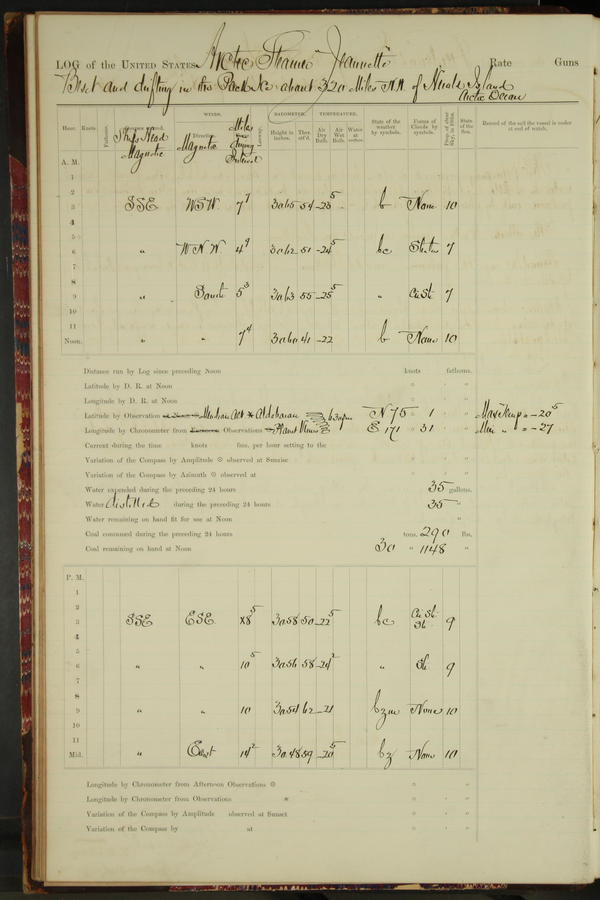 LOG of the UNITED STATES Arctic Steamer "Jeannette" Rate Guns
Beset and drifting in the Pack Ice about 320 Miles N.W. of Herald Island
Arctic Ocean
Hour. Knots. Fathoms. Ship's Head Magnetic WINDS. Direction Magnetic Miles Leeway. BAROMETER. Height in inches. Ther. att'd. TEMPERATURE. Air Dry Bulb. Air Wet Bulb. Water at surface. State of the weather by symbols. Forms of Clouds by symbols. Prop. of clear Sky, in 10ths. State of the Sea. Record of the sail the vessel is under at end of watch.
A. M.
1
2
3 SSE WSW 7⁷ 30.65 54 -25⁵ b None 10
4
5
6 " W N W. 4⁹ 30.62 51 -24⁵ bc Stratus 7
7
8
9 " South 5³ 30.63 55 -25⁵ " Cu St. 7
10
11
Noon. " " 7⁴ 30.60 41 -22 b None 10
Distance run by Log since preceding Noon knots fathoms.
Latitude by D. R. at Noon ° ' "
Longitude by D. R. at Noon ° ' "
Latitude by Observation Meridian Alt * Aldebaran 6 30 pm N 75 1 Max Temp = -20⁵
Longitude by Chronometer from Observations Planet Venus E 171 31 Min " = -27
Current during the time knots fms. per hour setting to the
Variation of the Compass by Amplitude ☉ observed at Sunrise ° ' "
Variation of the Compass by Azimuth ☉ observed at ° ' "
Water expended during the preceding 24 hours 35 gallons.
Water distilled during the preceding 24 hours 35 "
Water remaining on hand fit for use at Noon "
Coal consumed during the preceding 24 hours tons, 290 lbs.
Coal remaining on hand at Noon 30 " 1148 "
P. M.
1
2
3 SSE ESE 8⁵ 30.58 50 -22⁵ bc Cu St. St. 9
4
5
6 " " 10⁵ 30.56 58 -21² " St. 9
7
8
9 " " 10 30.54 62 -21 bzm None 10
10
11
Mid. " East 14² 30.48 59 -20⁵ bz None 10
Longitude by Chronometer from Afternoon Observations ☉ ° ' "
Longitude by Chronometer from Observations * ° ' "
Variation of the Compass by Amplitude observed at Sunset ° ' "
Variation of the Compass by at ° ' "